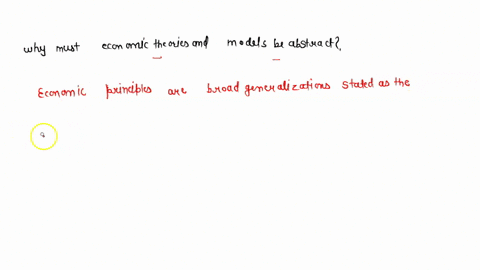 why must economic theories and models be abstract?
Economic principles are broad generalizations stated as the